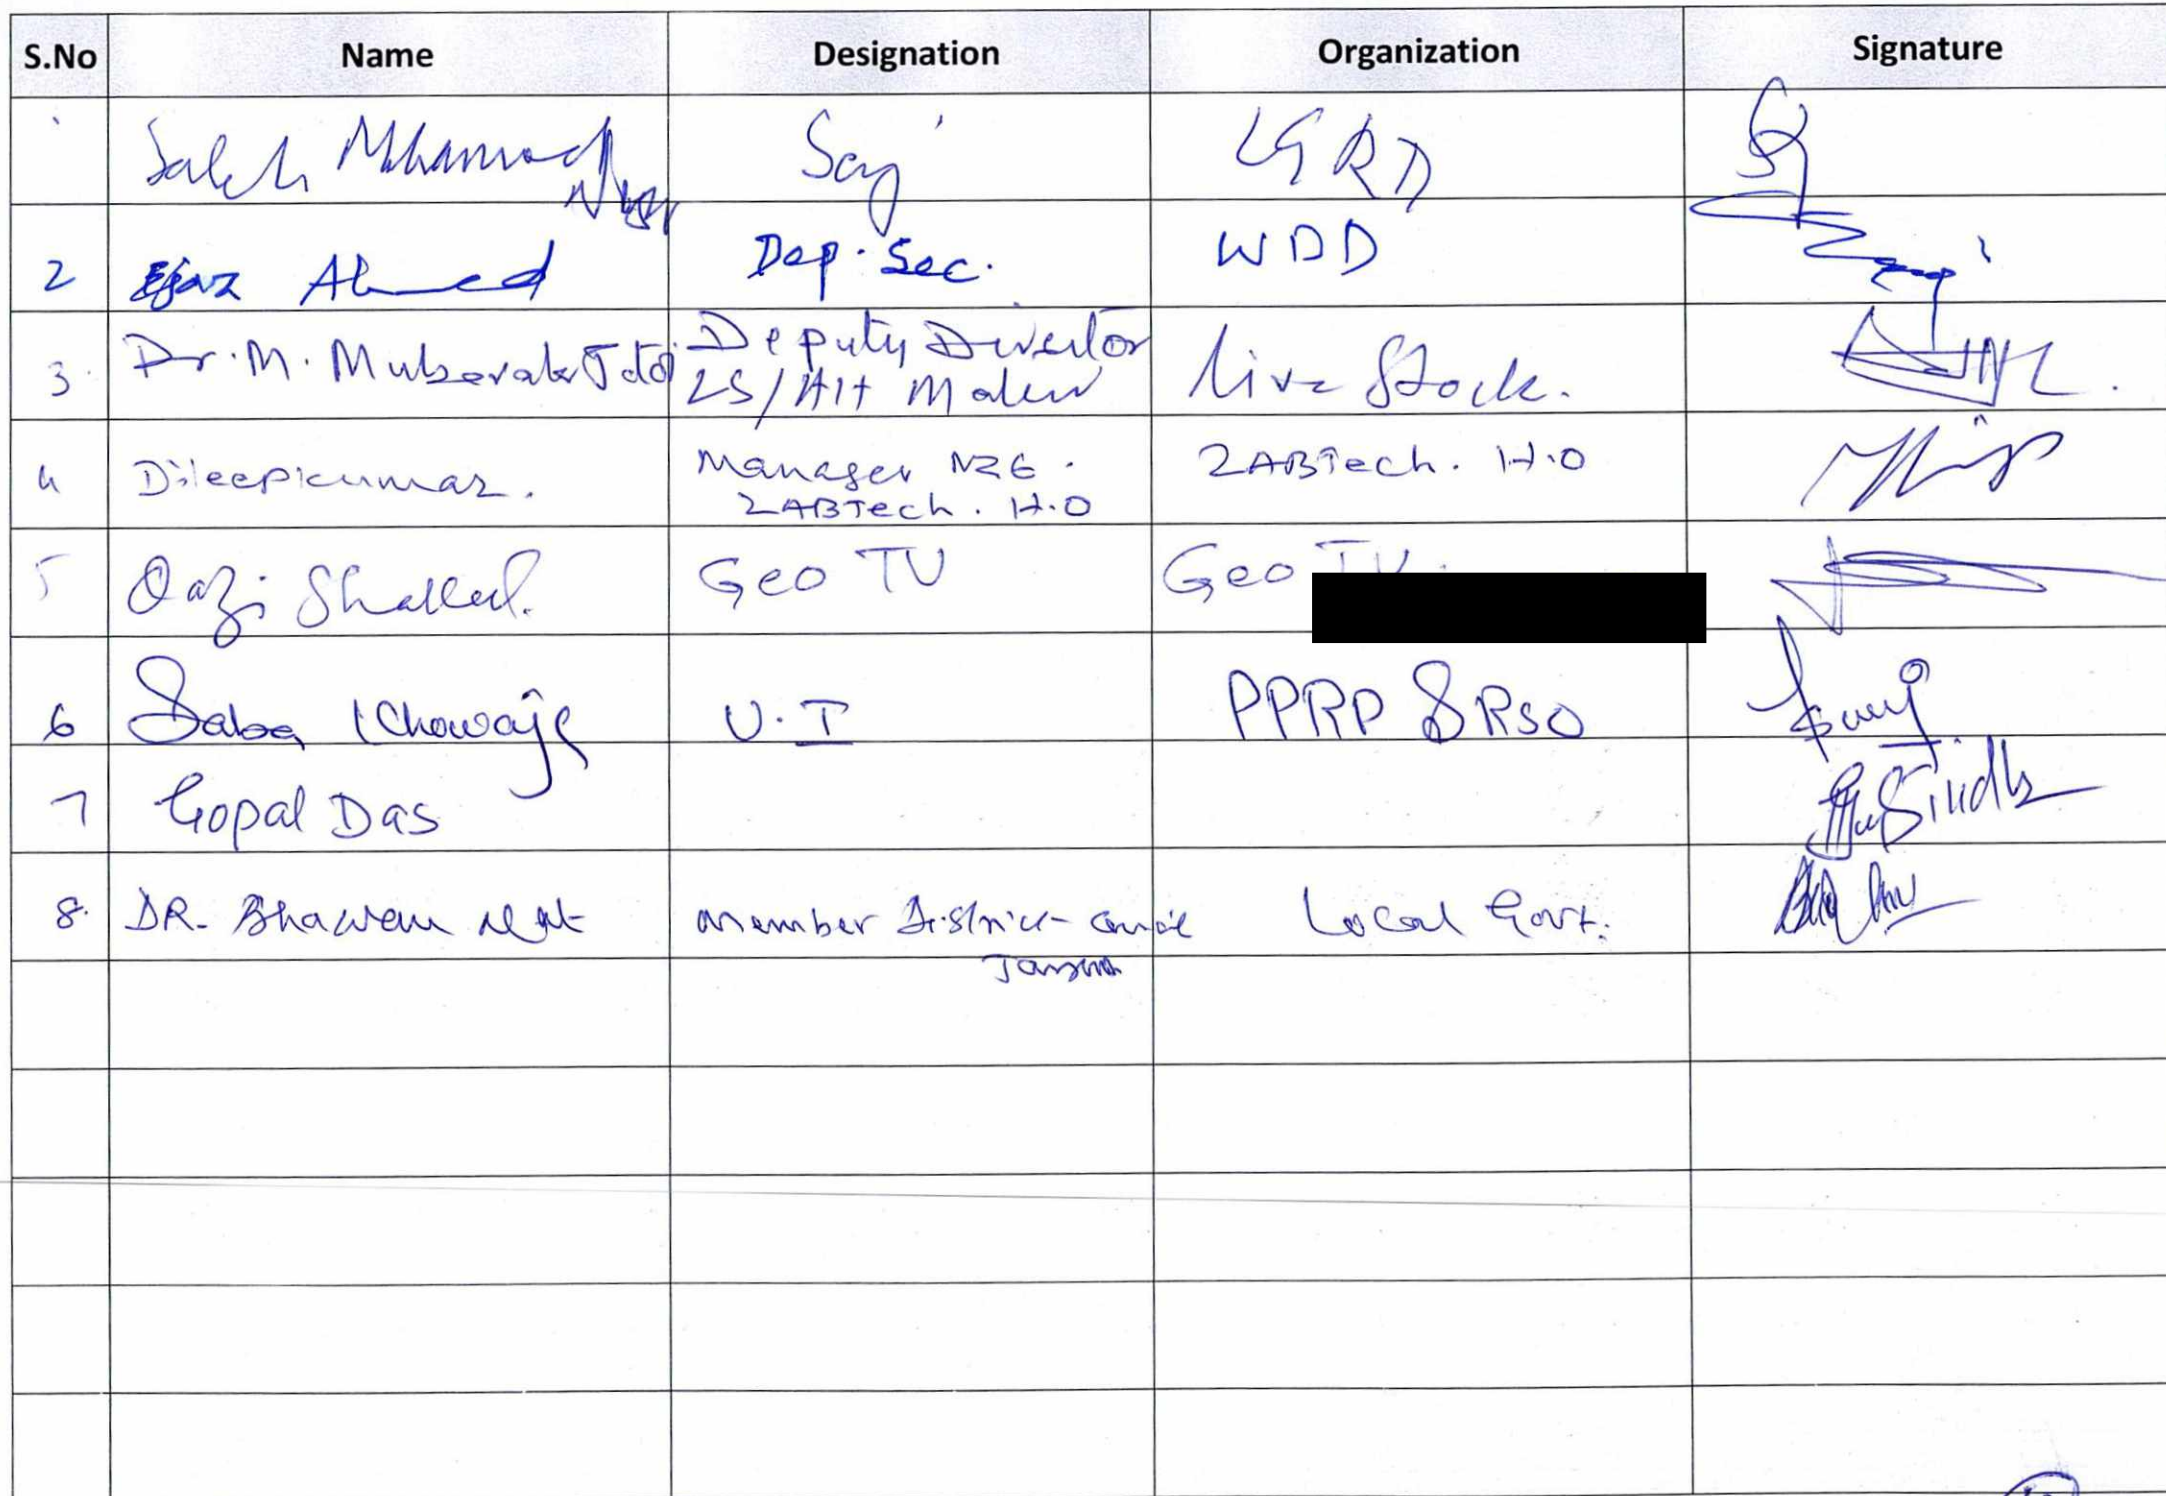 S.No Name Designation Organization Signature
Saleh Muhammad LGRD
2 Ejaz Ahmed Dep. Sec. WDD
3. Dr. M. Mubarak Jatoi Deputy Director Live Stock.
LS/AH Malir
4 Dileepkumar. Manager ZABTech. H.O
ZABTech. H.O
5 Qazi Shakeel. Geo TV Geo TV.
6 Saba Khowaja U.I PPRP SRSO
7 Gopal Das
8. DR. Bhawan Member District Local Govt.